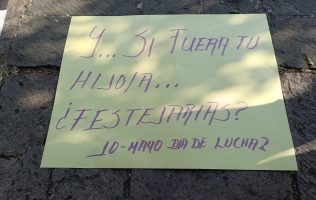 Y... SI FUERA TU
HIJO/A...
¿FESTEJARIAS?
10-MAYO DIA DE LUCHA?